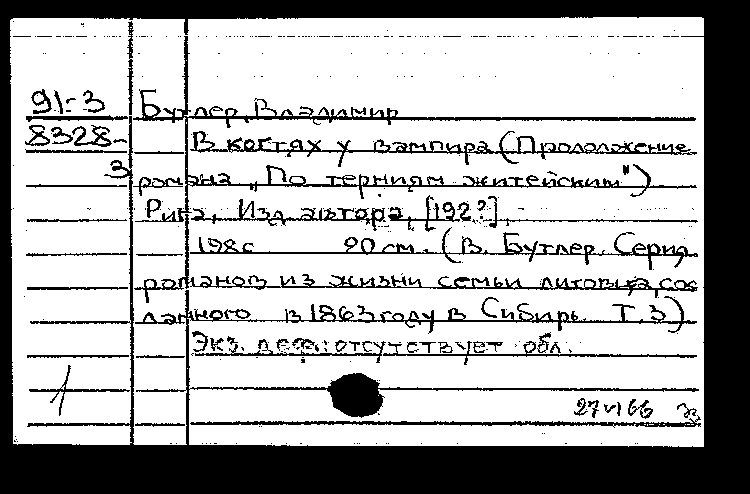 91-3 Бутлер, Владимир
8328- В когтях у вампира (Продолжение
3 романа „По терниям житейским")
Рига, Изд. автора, [192?],
198 с 20 см. (В. Бутлер. Серия
романов из жизни семьи литовца, сос
ланного в 1863 году в Сибирь. Т. 3)
Экз. деф.: отсутствует обл.
1
27 VI 66